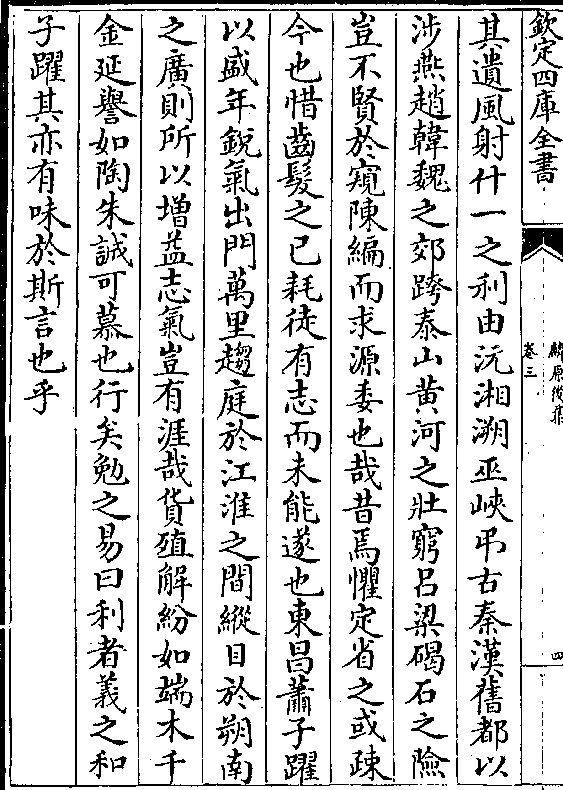 欽定四庫全書
麟原後集
卷三
四
其遺風射什一之利由沅湘溯巫峽弔古秦漢舊都以
涉燕趙韓魏之郊跨泰山黄河之壯窮吕梁碣石之險
豈不賢於窺陳編而求源委也哉昔焉懼定省之或疎
今也惜齒髮之已耗徒有志而未能遂也東昌蕭子躍
以盛年鋭氣出門萬里趨庭於江淮之間縱目於朔南
之廣則所以增益志氣豈有涯哉貨殖解紛如端木千
金延譽如陶朱誠可慕也行矣勉之易曰利者義之和
子躍其亦有味於斯言也乎